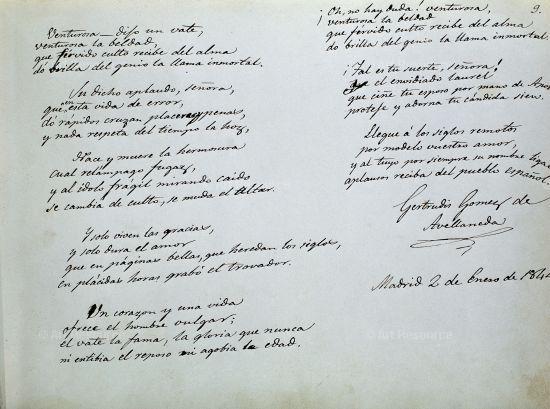 Venturosa — dijo un vate,
venturosa la beldad,
que férvido culto recibe del alma
dó brilla del genio la llama inmortal.
Su dicho aplaudo, señora,
que en esta vida de error,
dó rápidos cruzan placeres y penas,
y nada respeta del tiempo la hoz,
Nace y muere la hermosura
cual relámpago fugaz,
y al ídolo frágil mirando caido
se cambia de culto, se muda el altar.
Y solo viven las gracias,
y solo dura el amor
que en páginas bellas, que heredan los siglos,
en plácidas horas grabó el trovador.
Un corazon y una vida
ofrece el hombre vulgar;
el vate la fama, la gloria que nunca
ni entibia el reposo ni agobia la edad.
9.
¡Oh, no hay duda! venturosa,
venturosa la beldad
que férvido culto recibe del alma
do brilla del genio la llama inmortal.
¡Tal es tu suerte, señora!
que el envidiado laurel
que ciñe tu esposo por mano de
proteje y adorna tu cándida sien.
Llegue á los siglos remotos
por modelo vuestro amor,
y al tuyo por siempre su nombre
aplausos reciba del pueblo español
Gertrudis Gomez de
Avellaneda
Madrid 2 de Enero de
© Art Resource
Art Resource